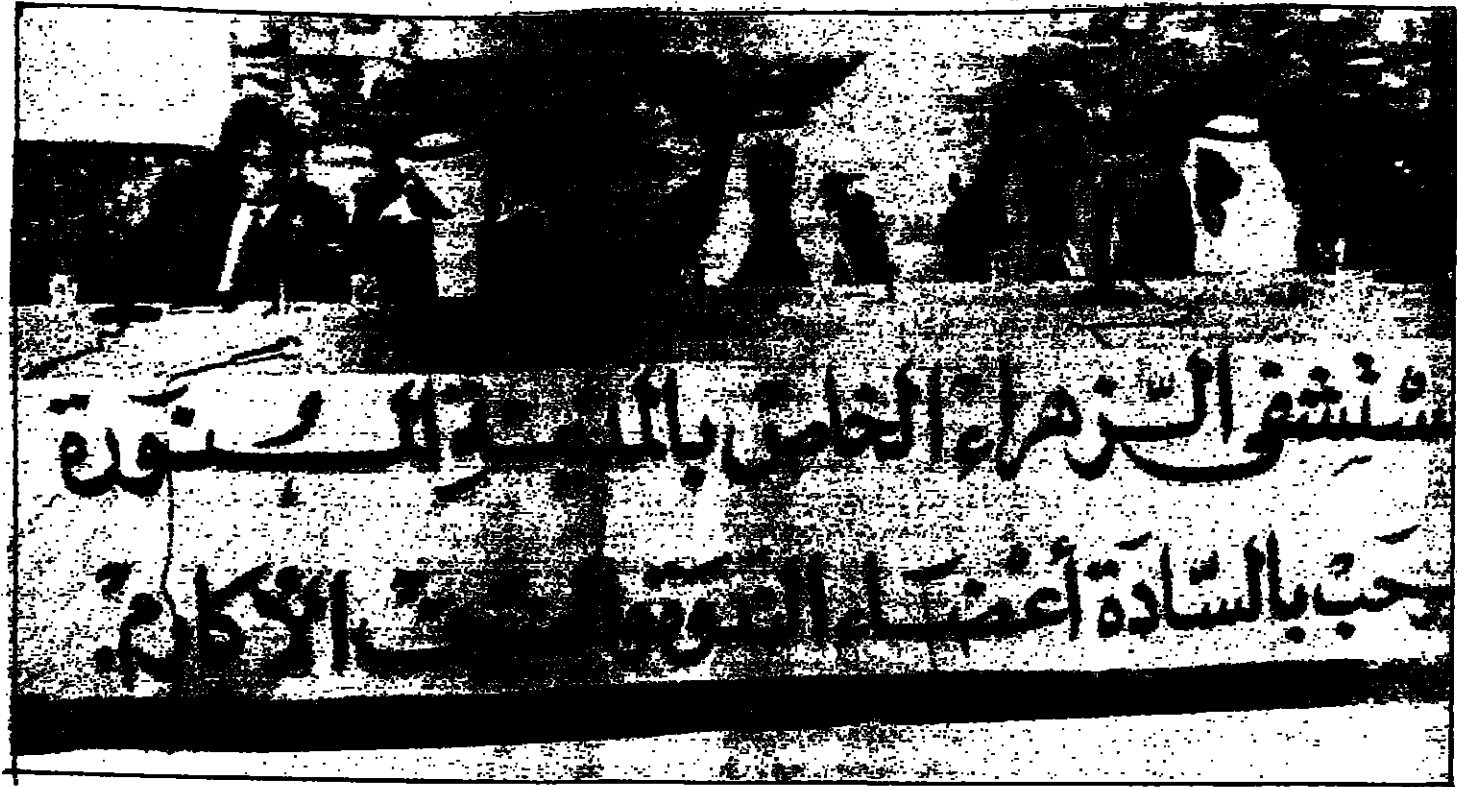 مستشفى الزهراء الخاص بالمدينة المنورة
يرحب بالسادة أعضاء الأكارم